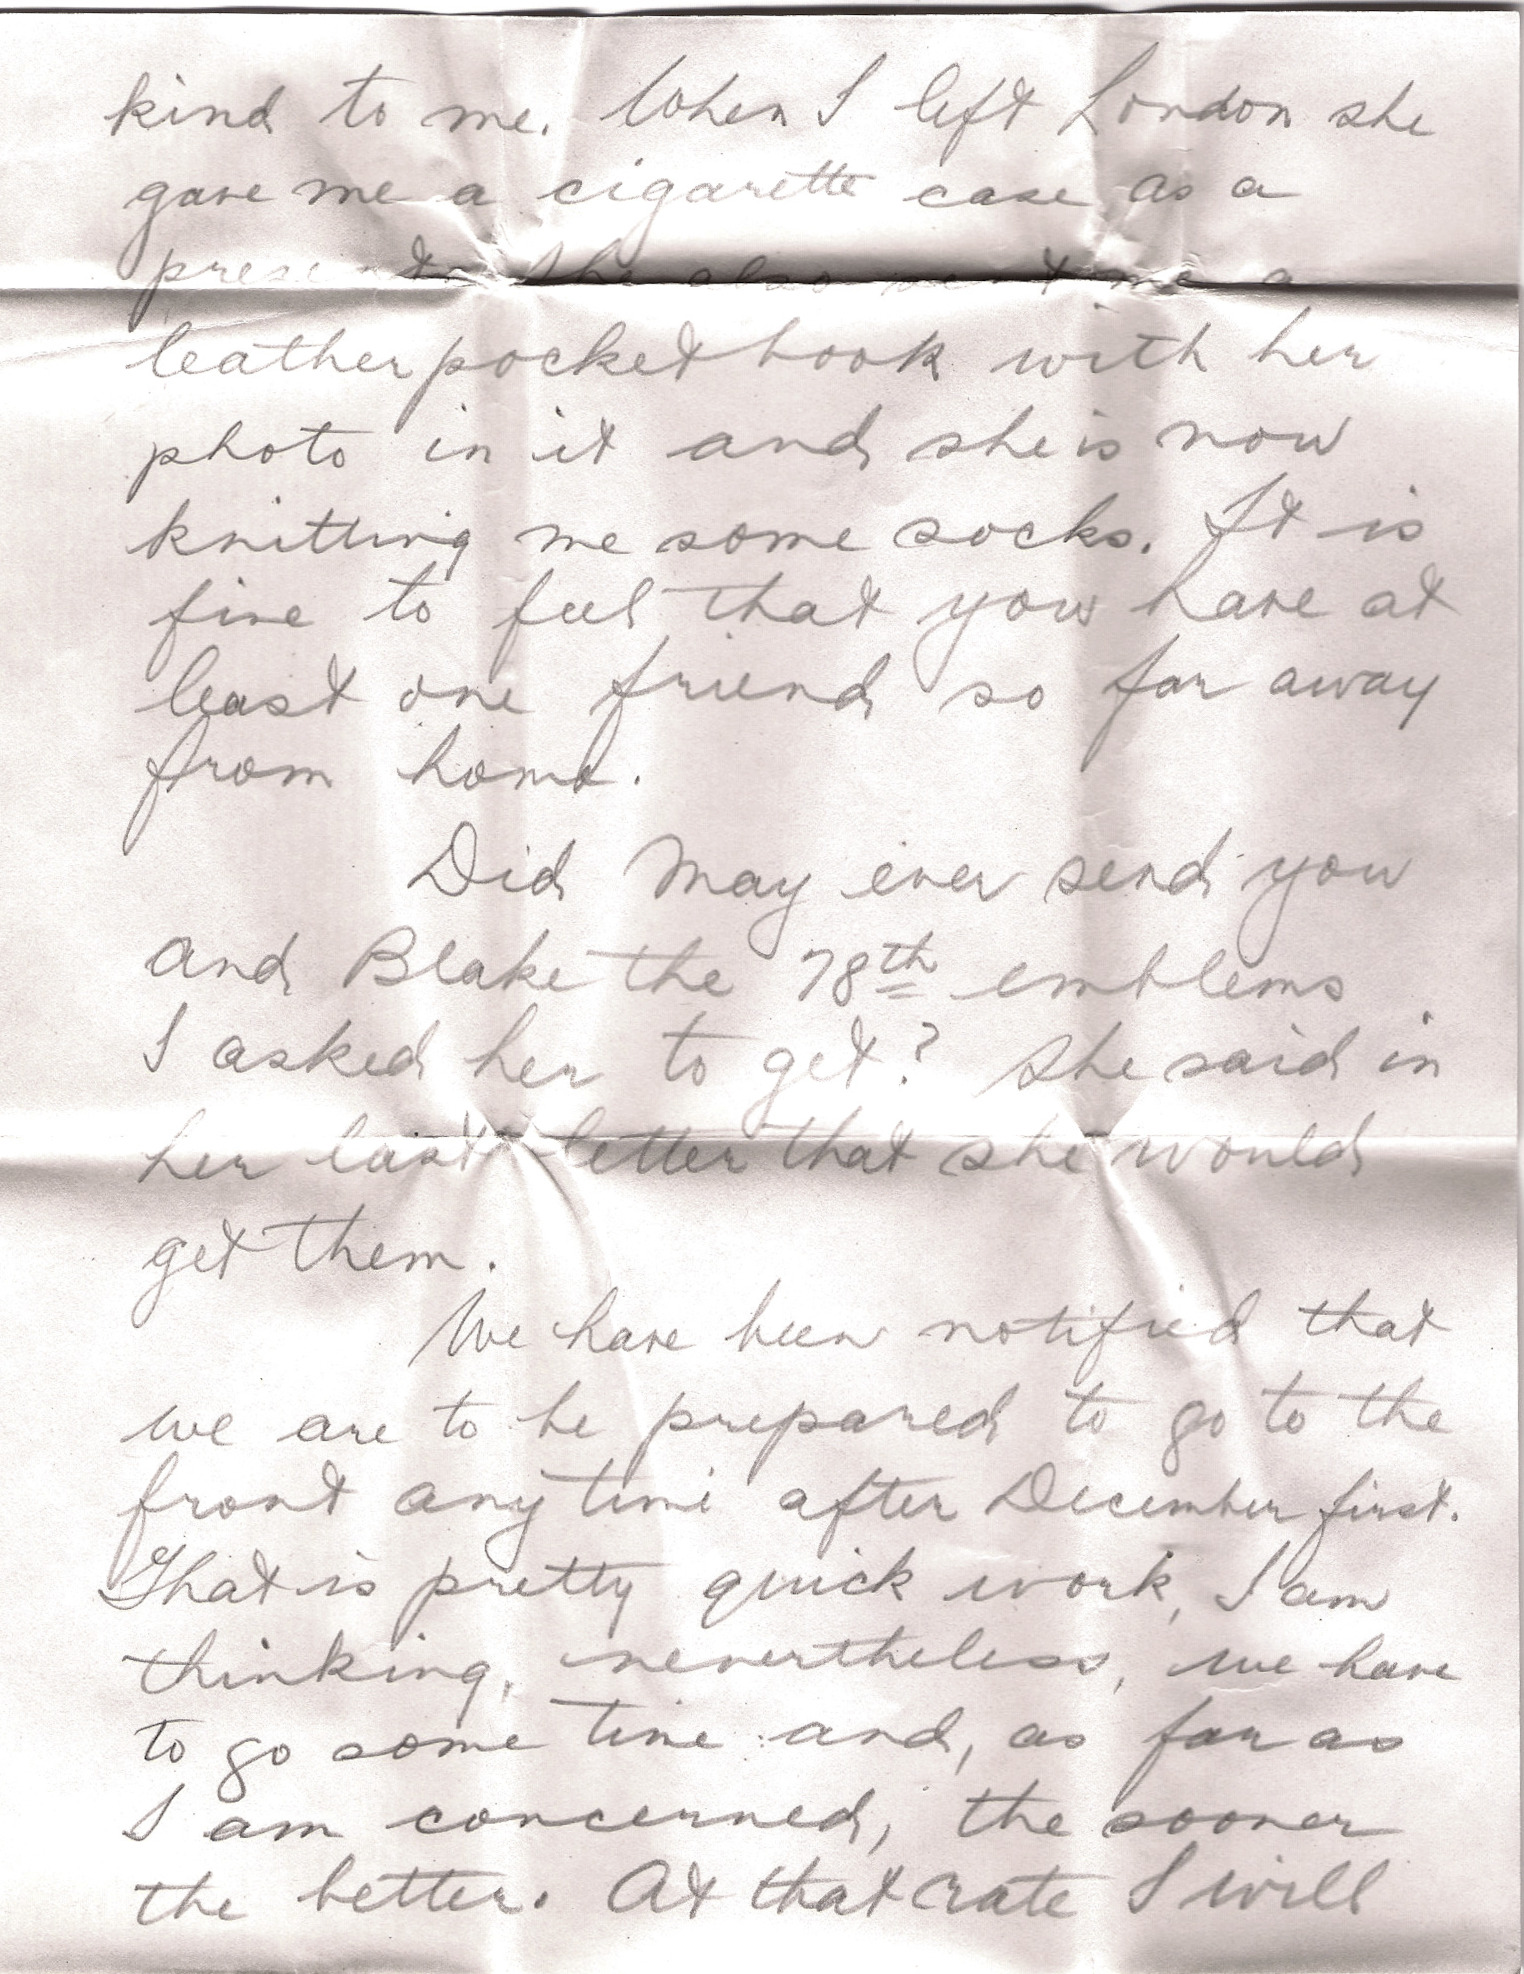 kind to me. When I left London she
gave me a cigarette case as a
present. She also sent me a
leather pocket book with her
photo in it and she is now
knitting me some socks. It is
fine to feel that you have at
least one friend so far away
from home.
Did May ever send you
and Blake the 78th emblems
I asked her to get? She said in
her last letter that she would
get them.
We have been notified that
we are to be prepared to go to the
front any time after December first.
That is pretty quick work, I am
thinking, nevertheless, we have
to go some time and, as far as
I am concerned, the sooner
the better. At that rate I will